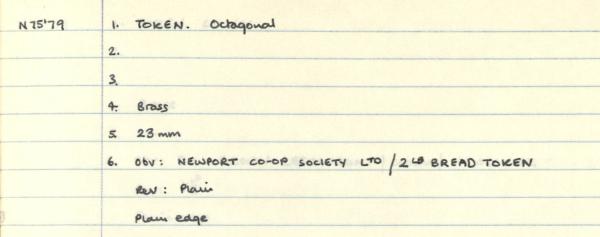 N75'79 1. TOKEN. Octagonal
2.
3.
4. Brass
5. 23 mm
6. Obv: NEWPORT CO-OP SOCIETY LTD / 2 LB BREAD TOKEN
Rev: Plain
Plain edge